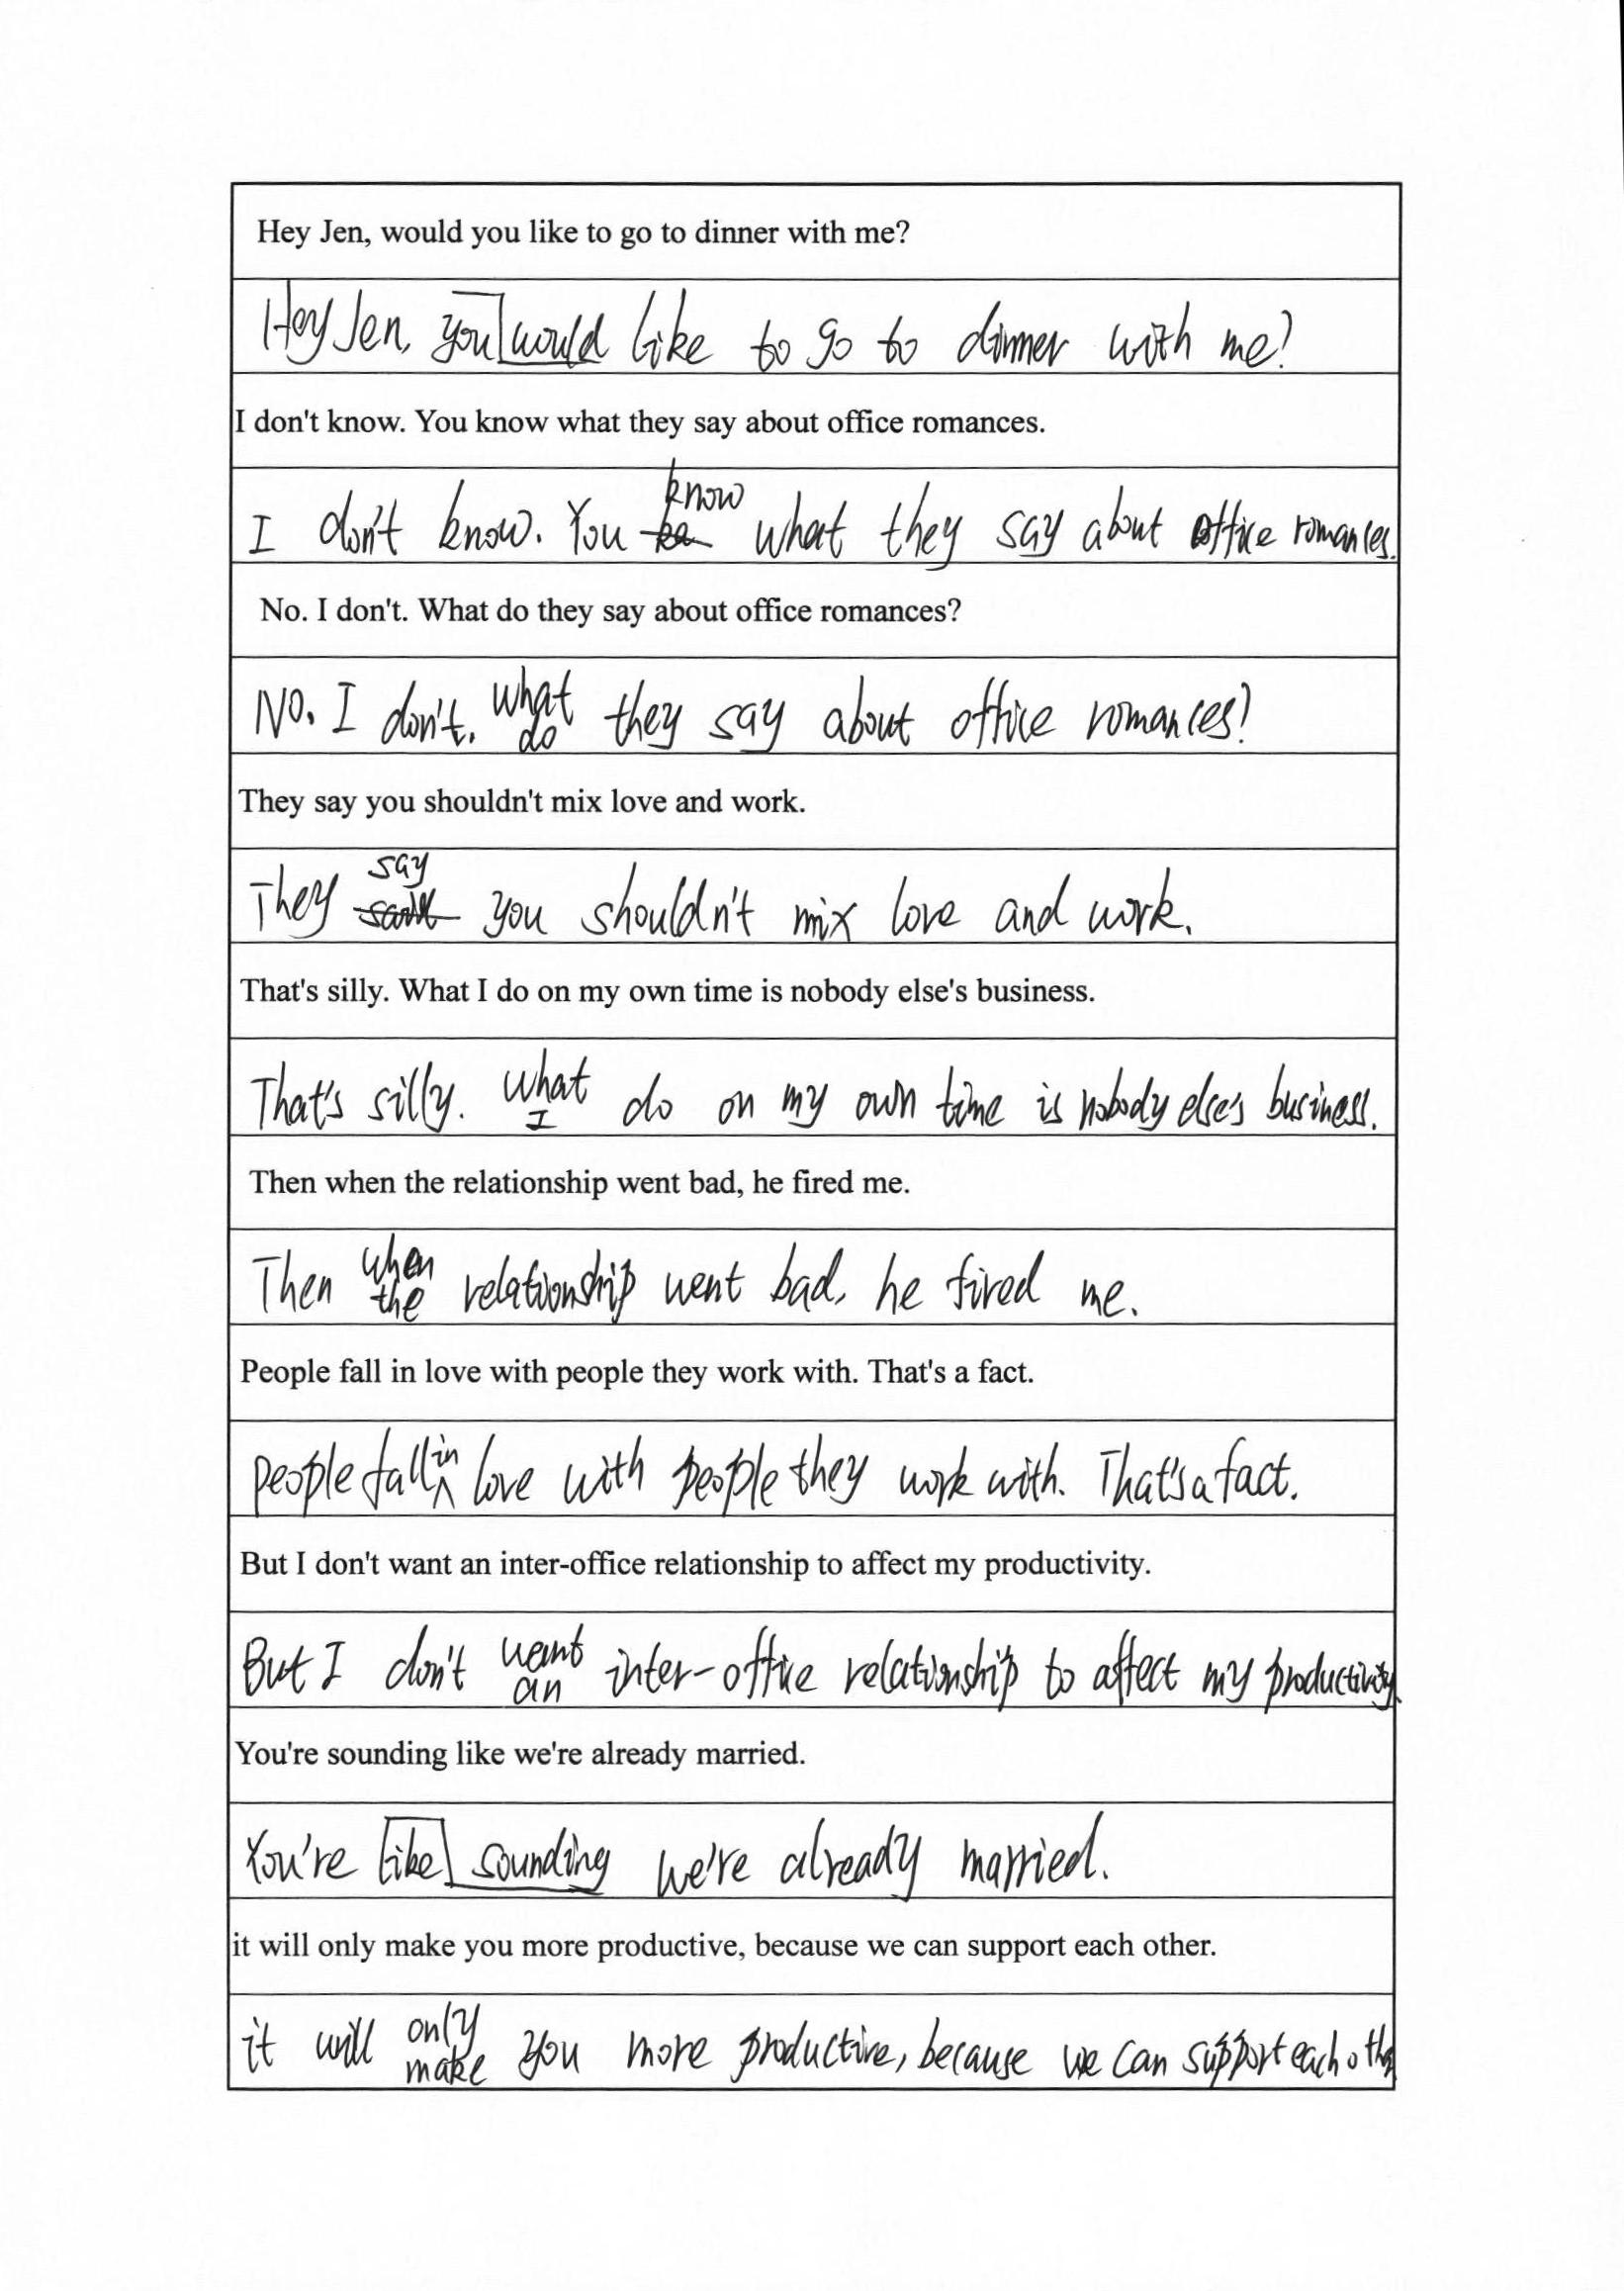 Hey Jen, would you like to go to dinner with me?
Hey Jen, would you like to go to dinner with me?
I don't know. You know what they say about office romances.
I don't know. You know what they say about office romances.
No. I don't. What do they say about office romances?
No. I don't. what do they say about office romances?
They say you shouldn't mix love and work.
They say you shouldn't mix love and work.
That's silly. What I do on my own time is nobody else's business.
That's silly. What I do on my own time is nobody else's business.
Then when the relationship went bad, he fired me.
Then when the relationship went bad, he fired me.
People fall in love with people they work with. That's a fact.
people fall in love with people they work with. That's a fact.
But I don't want an inter-office relationship to affect my productivity.
But I don't want an inter-office relationship to affect my productivity.
You're sounding like we're already married.
You're sounding like we're already married.
it will only make you more productive, because we can support each other.
it will only make you more productive, because we can support each other